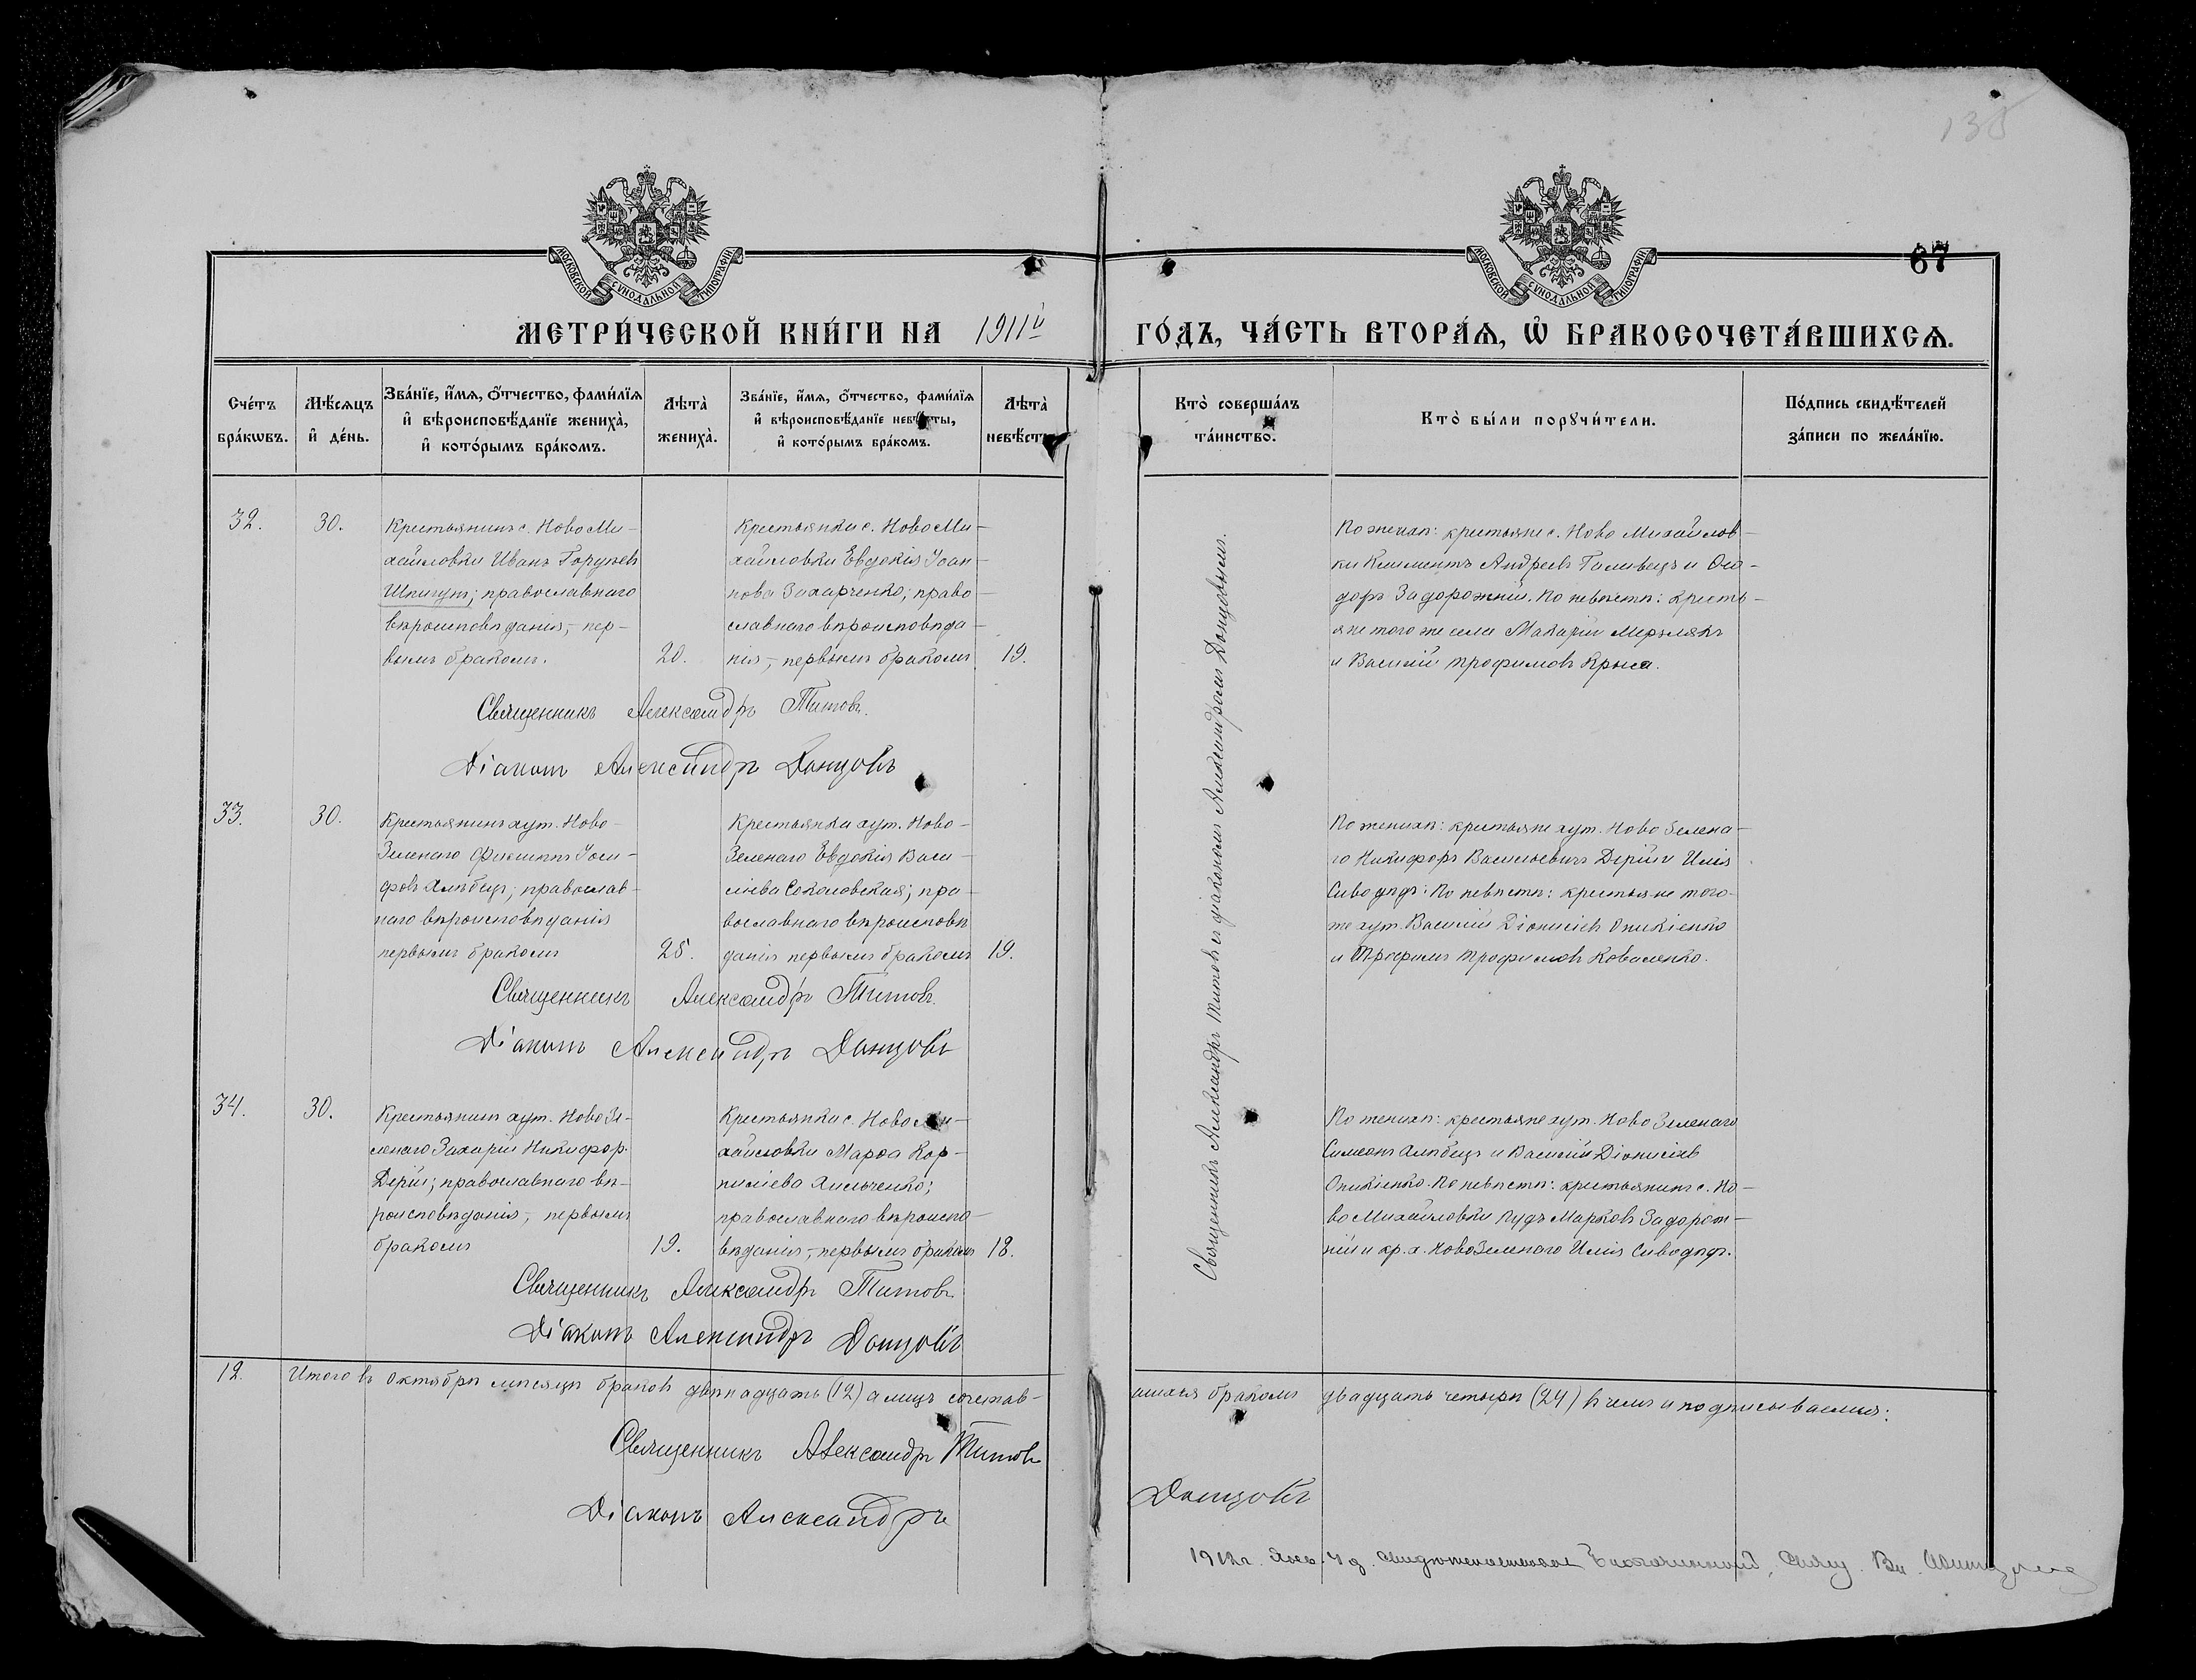 135
МОСКОВСКОЙ СѴНОДАЛЬНОЙ ТИПОГРАФІИ
МОСКОВСКОЙ СѴНОДАЛЬНОЙ ТИПОГРАФІИ
67
МЕТРИ́ЧЕСКОЙ КНИ́ГИ НА 1911й ГО́ДЪ, ЧА́СТЬ ВТОРА́Я, Ѡ БРАКОСОЧЕТА́ВШИХСѦ.
Сче́тъ бра́кѡвъ.
Мѣ́сяцъ и де́нь.
Зва́нїе, и́мя, о́тчество, фами́лїя и вѣроисповѣ́данїе жениха̀, и кото́рымъ бра́комъ.
Лѣта̀ жениха̀.
Зва́нїе, и́мя, о́тчество, фами́лїя и вѣроисповѣ́данїе невѣ́сты, и кото́рымъ бра́комъ.
Лѣта̀ невѣ́сты
Кто̀ соверша́лъ та́инство.
Кто̀ бы́ли порꙋчи́тели.
По́дпись свидѣ́телей за́писи по жела́нїю.
32.
30.
Крестьянинъ с. Ново Ми-
хайловки Иванъ
Шпигун; православнаго
вѣроисповѣданія, - пер-
вымъ бракомъ.
20.
Крестьянка с. Ново Ми-
хайловки Евдокія Іоан-
нова Захарченко; право-
славнаго вѣроисповѣда-
нія, - первымъ бракомъ
19.
По женихѣ: крестьяне с. Ново Михайлов-
ки Климентъ Андреевъ Галивецъ и Ѳео-
доръ Задорожній. По невѣстѣ: кресть-
яне того же села Макарій Мерзлякъ
и Василій Трофимовъ Крыса.
Священникъ Александръ Титовъ.
Діаконъ Александръ Донцовъ
Священникъ Александръ Титовъ съ діакономъ Александромъ Донцовымъ.
33.
30.
Крестьянинъ хут. Ново-
Зеленаго Филиппъ Іоси-
фовъ Хлѣбецъ; православ-
наго вѣроисповѣданія
первымъ бракомъ
25.
Крестьянка хут. Ново-
Зеленаго Евдокія Васи-
ліева Соколовская; пра-
вославнаго вѣроисповѣ
данія первымъ бракомъ
19.
По женихѣ: крестьяне хут. Ново Зелена-
го Никифоръ Васильевичъ Дерій и Илія
Сиводѣдъ. По невѣстѣ: крестьяне того-
же хут. Василій Діонисіевъ Оникіенко
и Трофимъ Трофимовъ Коваленко.
Священникъ Александръ Титовъ.
Діаконъ Александръ Донцовъ
34.
30.
Крестьянинъ хут. Ново Зе-
ленаго Захарій Никифор.
Дерій; православнаго вѣ-
роисповѣданія, первымъ
бракомъ
19.
Крестьянка с. Ново Ми-
хайловки Марѳа Кор-
ниліева Хильченко;
православнаго вѣроиспо-
вѣданія, - первымъ бракомъ
18.
По женихѣ: крестьяне хут. Ново Зеленаго
Симеонъ Хлѣбецъ и Василій Діонисіевъ
Оникіенко. По невѣстѣ: крестьянинъ с. Но-
во Михайловки Гудъ Марковъ Задорож-
ній и кр. х. Ново Зеленаго Илія Сиводѣдъ.
Священникъ Александръ Титовъ
Діаконъ Александръ Донцовъ
12.
Итого въ Октябрѣ мѣсяцѣ браковъ двѣнадцать (12) а лицъ сочетав-
шихся бракомъ двадцать четыре (24) въ чемъ и подписываемся:
Священникъ Александръ Титовъ
Діаконъ Александръ Донцовъ
1912 г. Янв. 4 д. свидѣтельствовалъ Благочинный, Свящ. Вл.